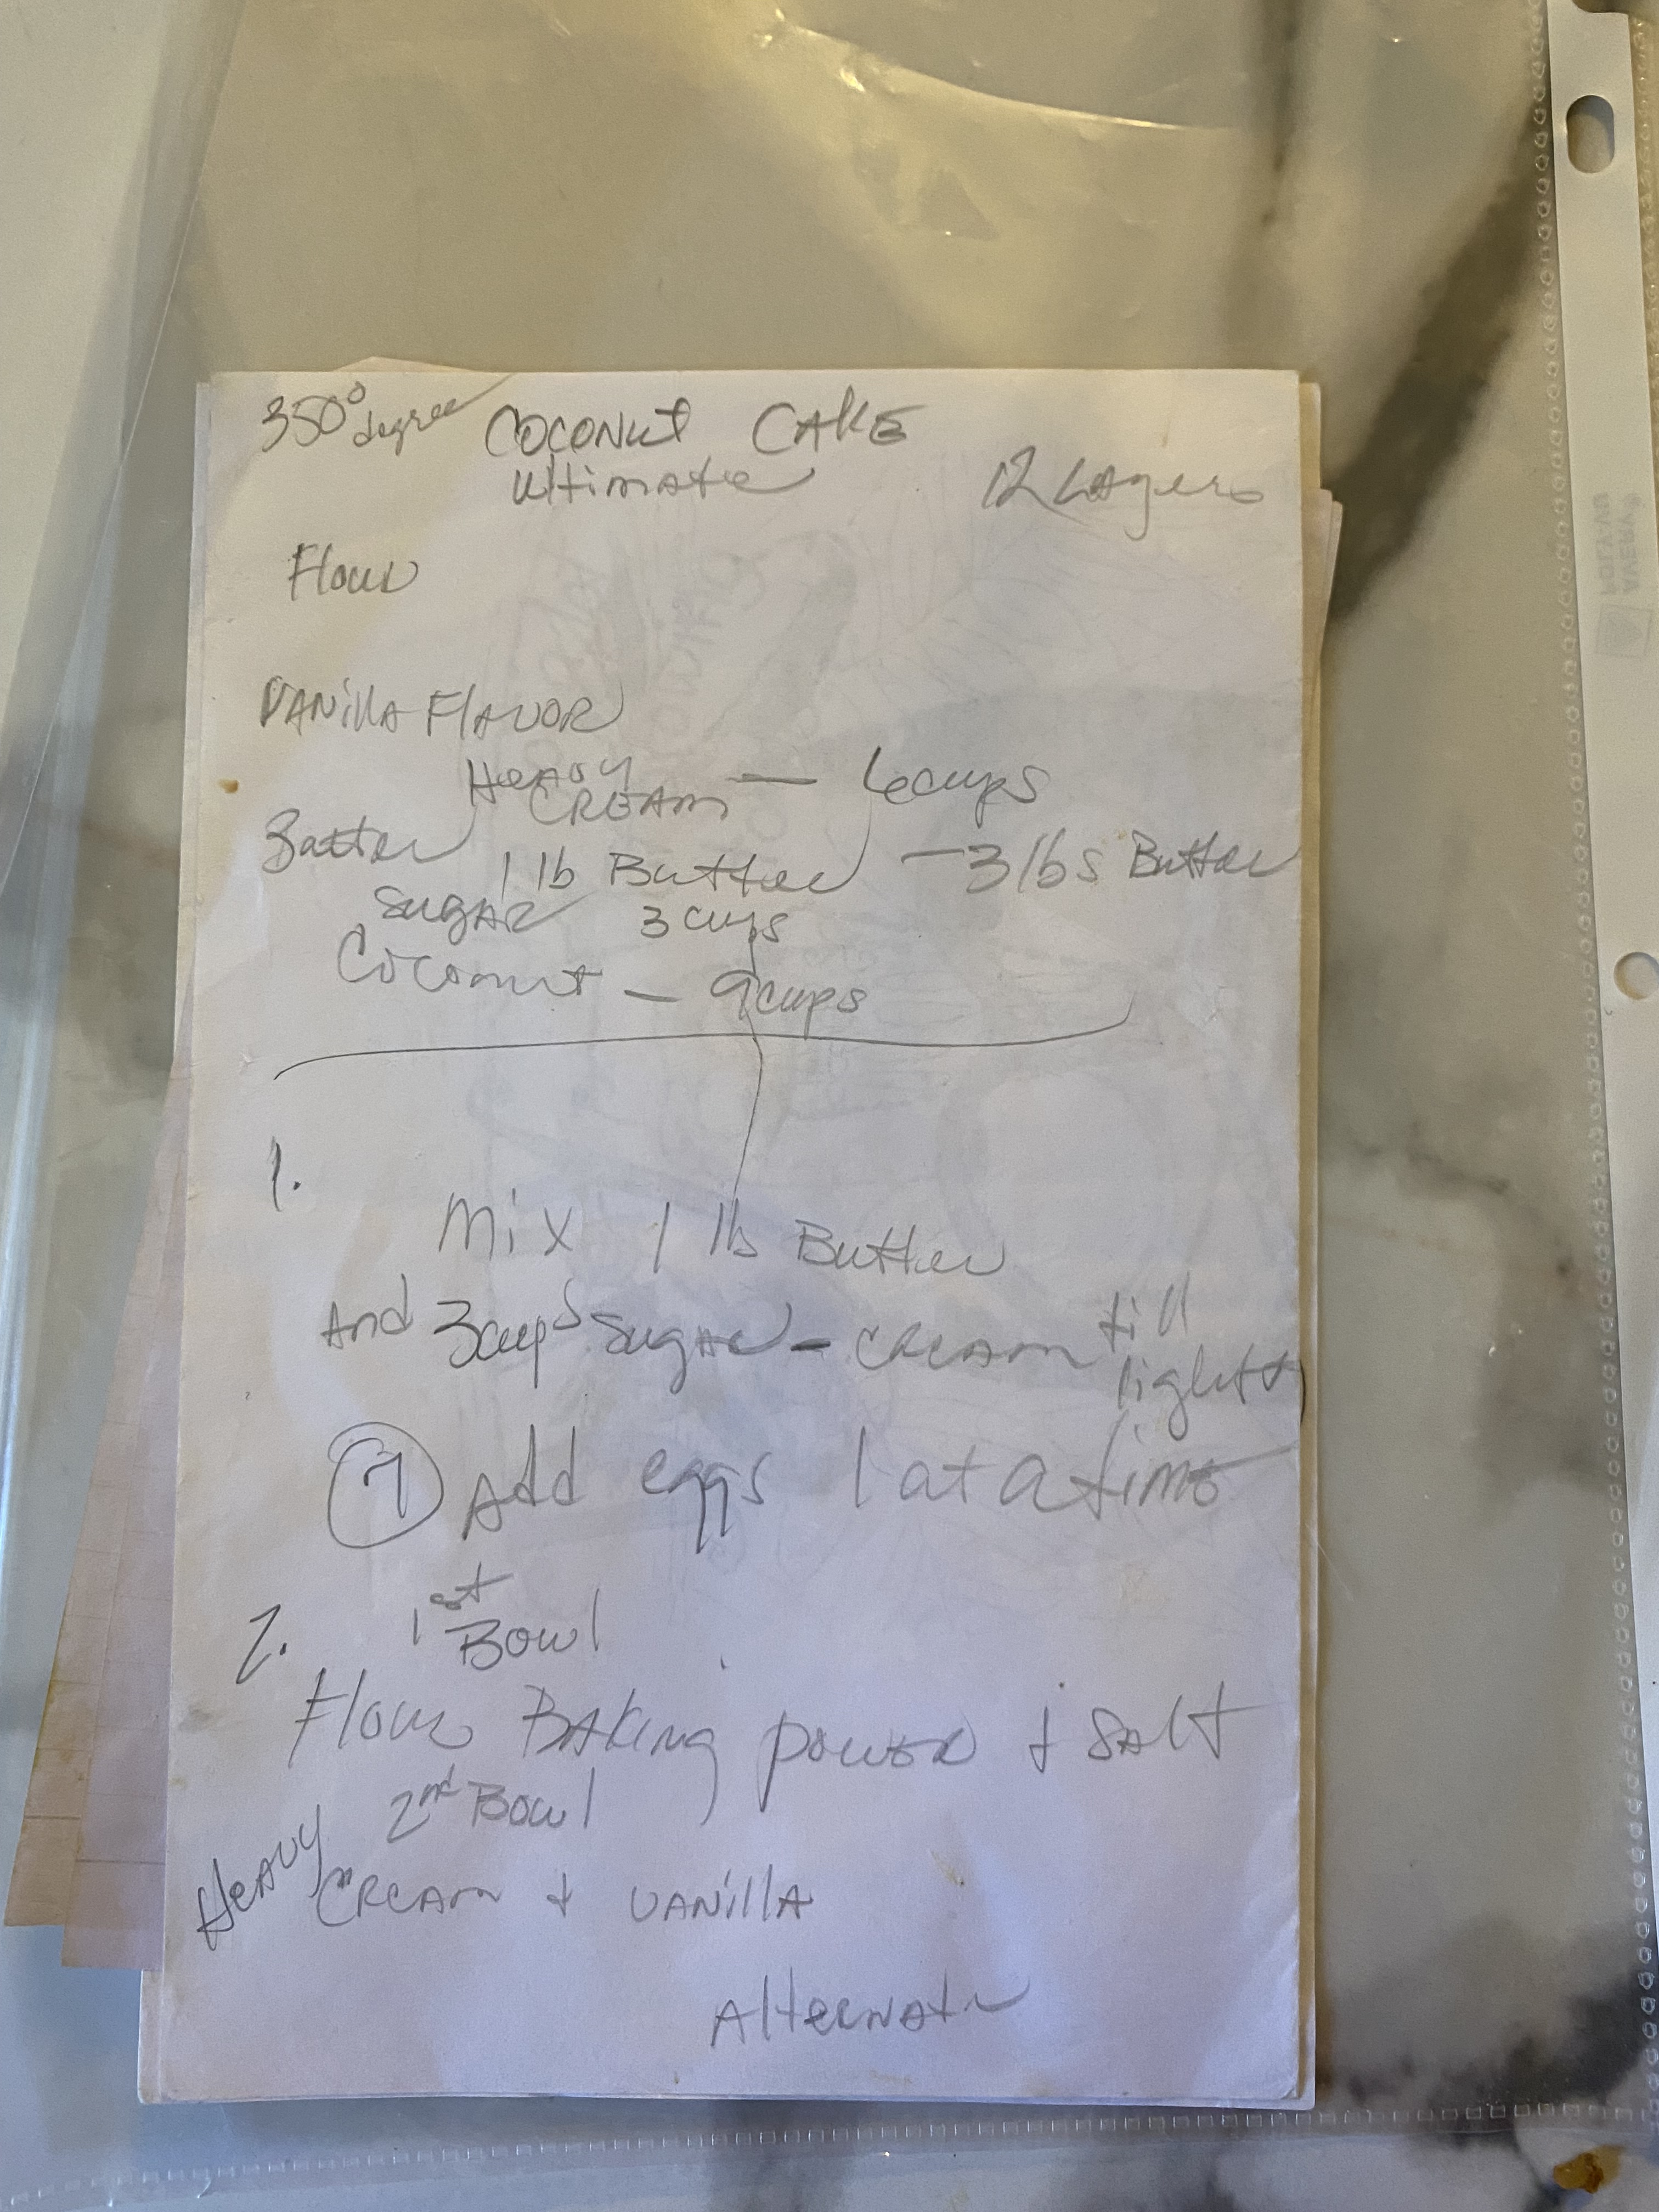 350° degree COCONUT CAKE
Ultimate
12 Layers
Flour
VANillA FLAVOR
HEAVY CREAM — 6 cups
Batter 1 lb Butter — 3 lbs Butter
SUGAR 3 cups
Coconut — 9 cups
1.
Mix 1 lb Butter
And 3 cups Sugar - CREAM till
light
7 Add eggs 1 at a time
2. 1st Bowl
Flour BAKing power + SAlt
2nd Bowl
HEAVY CREAM + VANillA
Alternate
AVERY